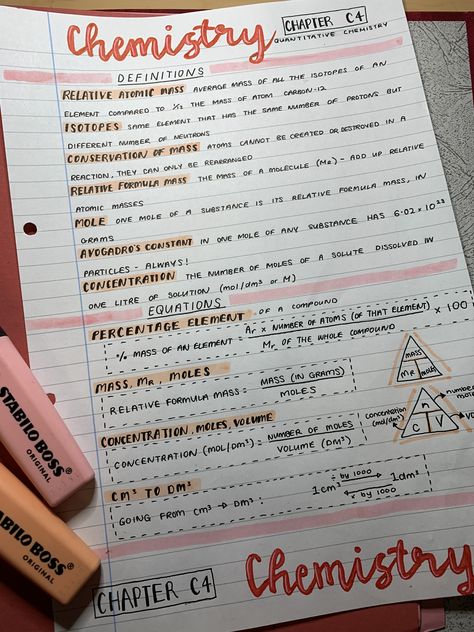 Chemistry
CHAPTER C4
QUANTITATIVE CHEMISTRY
DEFINITIONS
RELATIVE ATOMIC MASS AVERAGE MASS OF ALL THE ISOTOPES OF AN
ELEMENT COMPARED TO 1/12 THE MASS OF ATOM CARBON-12
ISOTOPES SAME ELEMENT THAT HAS THE SAME NUMBER OF PROTONS BUT
DIFFERENT NUMBER OF NEUTRONS
CONSERVATION OF MASS ATOMS CANNOT BE CREATED OR DESTROYED IN A
REACTION, THEY CAN ONLY BE REARRANGED
RELATIVE FORMULA MASS THE MASS OF A MOLECULE (MR) - ADD UP RELATIVE
ATOMIC MASSES
MOLE ONE MOLE OF A SUBSTANCE IS ITS RELATIVE FORMULA MASS, IN
GRAMS
AVOGADRO'S CONSTANT IN ONE MOLE OF ANY SUBSTANCE HAS 6.02 x 10²³
PARTICLES - ALWAYS!
CONCENTRATION THE NUMBER OF MOLES OF A SOLUTE DISSOLVED IN
ONE LITRE OF SOLUTION (mol/dm³ or M)
EQUATIONS
PERCENTAGE ELEMENT OF A COMPOUND
% MASS OF AN ELEMENT = Ar x NUMBER OF ATOMS (OF THAT ELEMENT) x 100
Mr OF THE WHOLE COMPOUND
MASS, MR, MOLES
RELATIVE FORMULA MASS = MASS (IN GRAMS)
MOLES
MASS
MR moles
CONCENTRATION, MOLES, VOLUME
CONCENTRATION (MOL/DM³) = NUMBER OF MOLES
VOLUME (DM³)
concentration
(mol/dm³)
number
n
C V
CM³ TO DM³
GOING FROM CM³ → DM³:
÷ by 1000
1cm³ 1dm³
x by 1000
CHAPTER C4
Chemistry
STABILO BOSS
ORIGINAL
STABILO BOSS
ORIGINAL